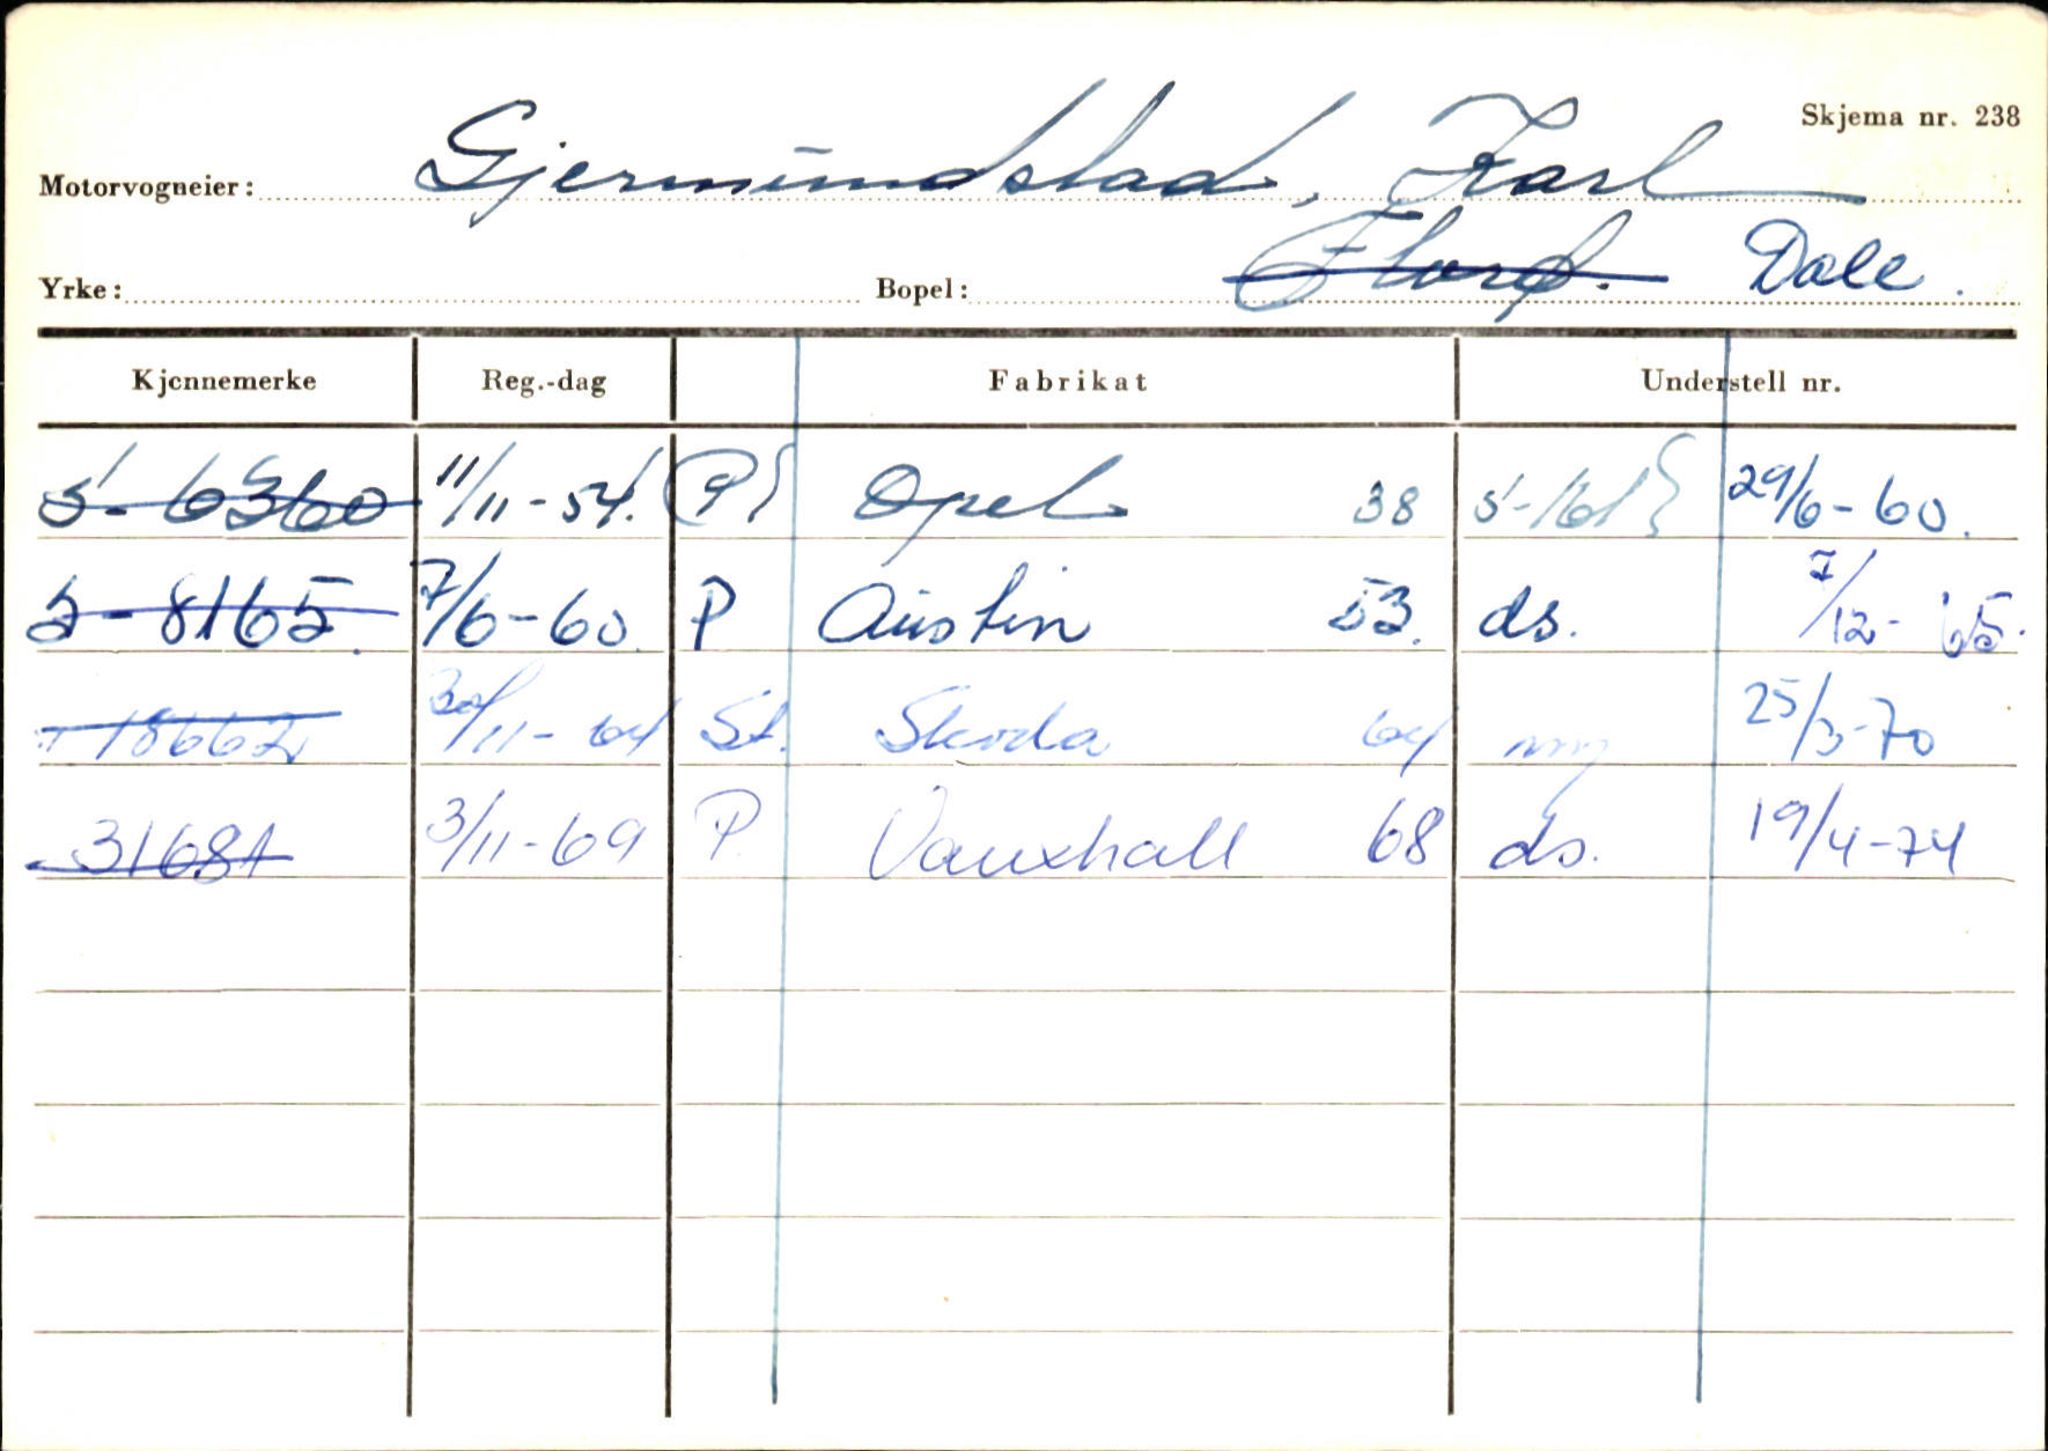 Skjema nr. 238
Motorvogneier: Gjermundstad, Karl
Yrke: Bopel: Florø. Dale.
Kjennemerke Reg.-dag Fabrikat Understell nr.
S-6360 11/11-54. (P) Opel 38 29/6-60.
S-8165. 7/6-60. P Austin 53. ds. 7/12-65.
18662 30/11-64 St. Skoda 64 ny 25/3-70
31681 3/11-69 P. Vauxhall 68 ds. 19/4-74